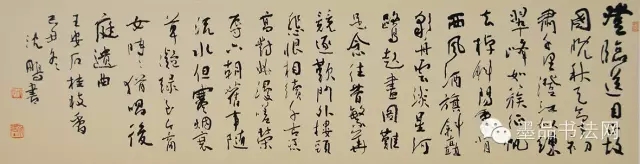 登臨送目正故
國晚秋天氣初
肅千里澄江似練
翠峰如簇征帆
去棹斜陽裏背
西風酒旗斜矗
彩舟雲淡星河
鷺起畫圖難
足念往昔繁華
競逐歎門外樓頭
悲恨相續千古憑
高對此漫嗟榮
辱六朝舊事隨
流水但寒煙衰
草凝綠至今商
女時時猶唱後
庭遺曲
王安石桂枝香
己丑冬
沈鵬書
墨品书法网